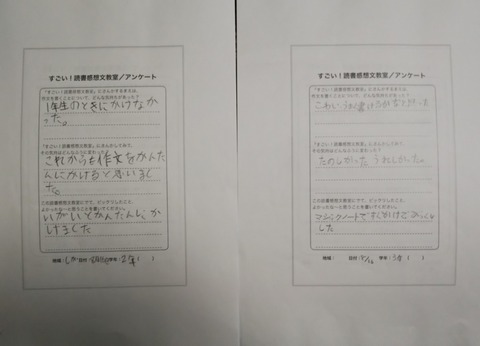 すごい！読書感想文教室／アンケート
「すごい！読書感想文教室」にさんかするまえは、
作文を書くことについて、どんな気持ちがあった？
1年生のときにかけなかっ
った。
「すごい！読書感想文教室」にさんかしてみて、
その気持はどんなふうに変わった？
これからも作文をかんた
んにかけると思いまし
た。
この読書感想文教室にでて、ビックリしたこと、
よかったな〜と思うことを書いてください。
いがいとかんたんに か
けました
地域： 日付： 学年：2年（ ）
すごい！読書感想文教室／アンケート
「すごい！読書感想文教室」にさんかするまえは、
作文を書くことについて、どんな気持ちがあった？
こわい うまく書けるか
「すごい！読書感想文教室」にさんかしてみて、
その気持はどんなふうに変わった？
たのしかった うれしかった。
この読書感想文教室にでて、ビックリしたこと、
よかったな〜と思うことを書いてください。
マジックノートですぐかけて びっくり
した
地域： 日付： 学年： （ ）